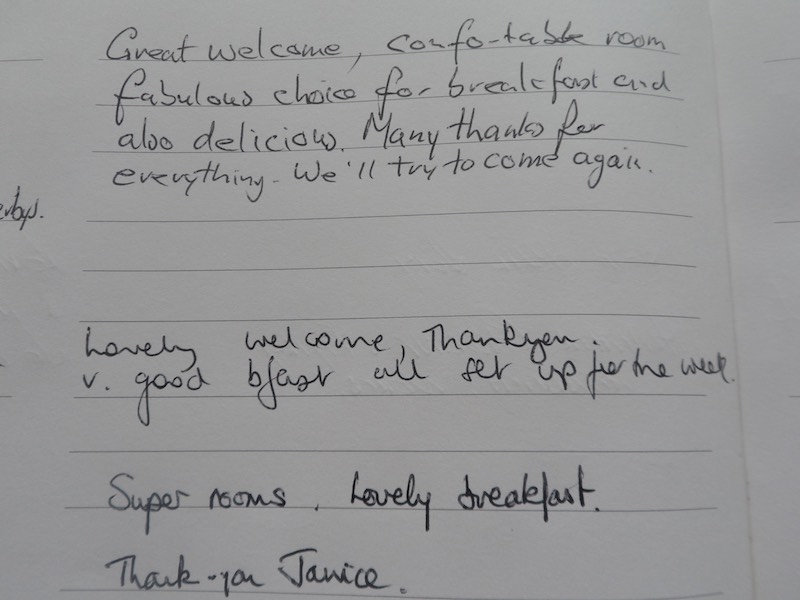 Great welcome, confo-table room
fabulous choice for breakfast and
also delicious. Many thanks for
everything. We'll try to come again.
Lovely welcome, Thankyou.
v. good bfast all set up for the week.
Super rooms, Lovely breakfast.
Thank-you Janice.